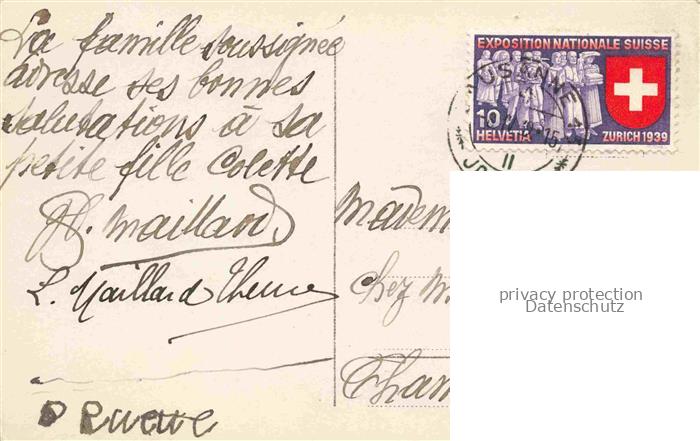 La famille soussignée
adresse ses bonnes
salutations à sa
petite fille Colette
Maillard
L. Maillard
EXPOSITION NATIONALE SUISSE
10
HELVETIA
ZURICH 1939
LAUSANNE 1
II
Chez M
privacy protection
Datenschutz